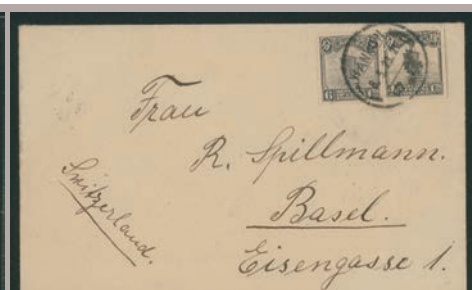 Frau
R. Spillmann.
Basel.
Eisengasse 1.
Switzerland.